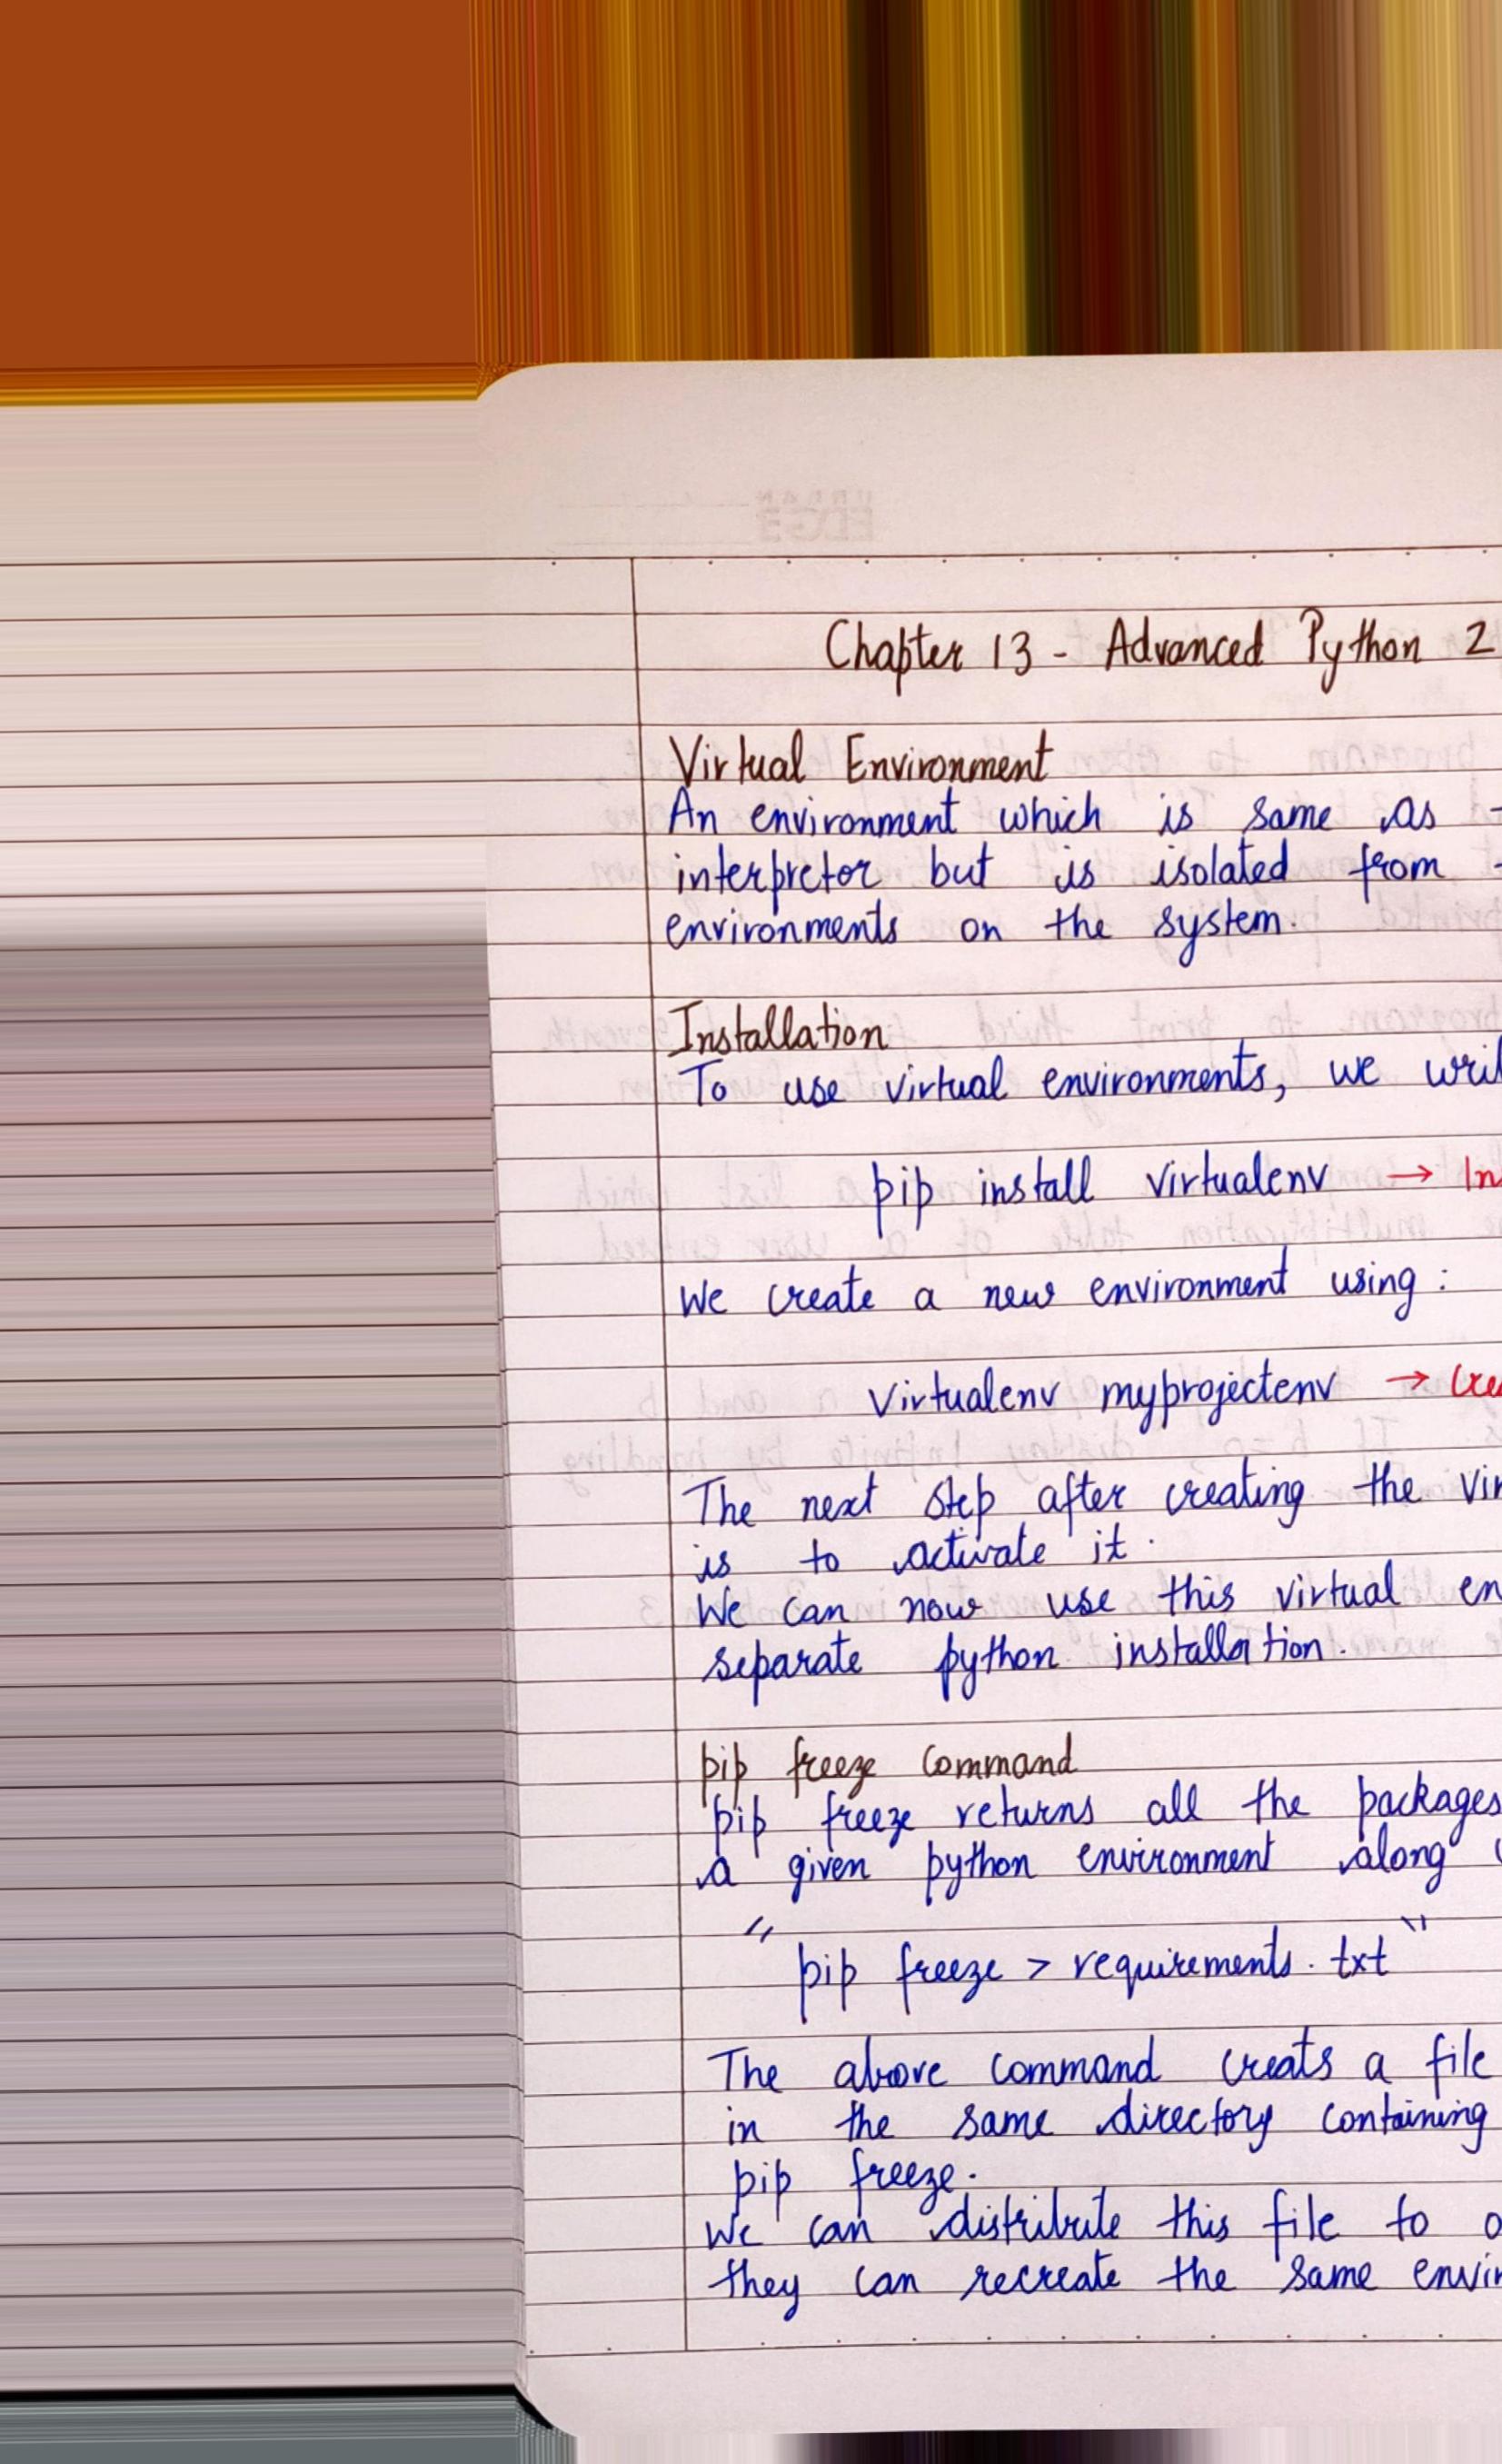 Chapter 13 - Advanced Python 2
Virtual Environment
An environment which is same as
interpretor but is isolated from
environments on the system.
Installation
To use virtual environments, we
pip install virtualenv →
We create a new environment using :
virtualenv myprojectenv →
The next step after creating the
is to activate it.
We can now use this virtual
separate python installation.
pip freeze command
pip freeze returns all the packages
a given python environment along
"pip freeze > requirements.txt"
The above command creats a file
in the same directory containing
pip freeze.
We can distribute this file to
they can recreate the same